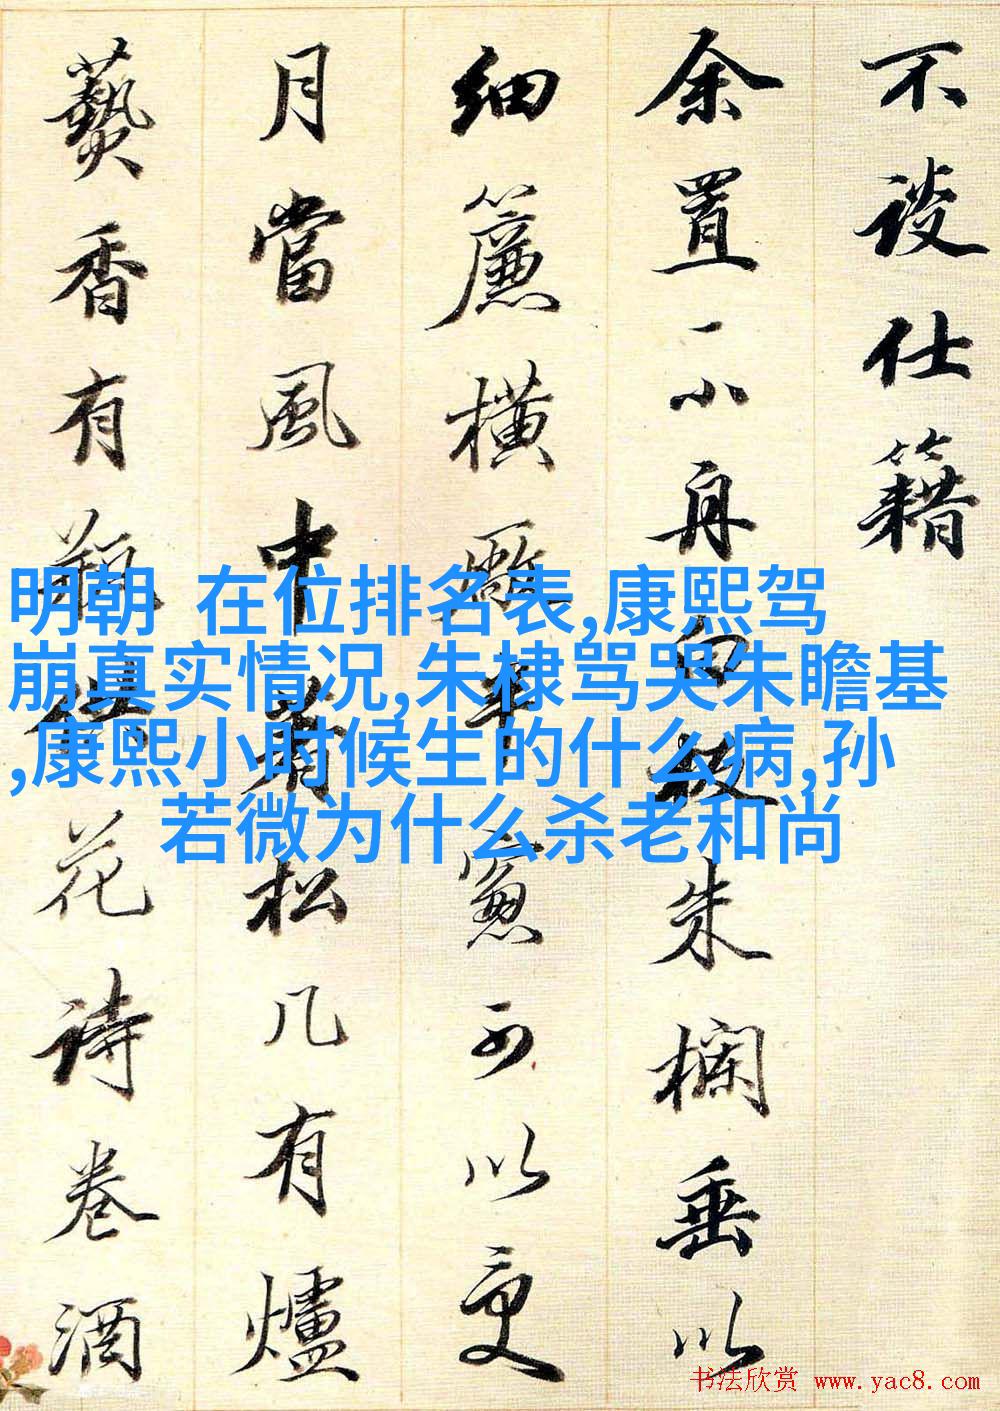 不談仕籍
余置一小舟白朱欄垂以
細簾橫窗可以
月當風中着松几有爐
爇香有瓶供花詩卷酒
明朝 在位排名表,康熙驾
崩真实情况,朱棣骂哭朱瞻基
,康熙小时候生的什么病,孙
若微为什么杀老和尚
书法欣赏 www.yac8.com